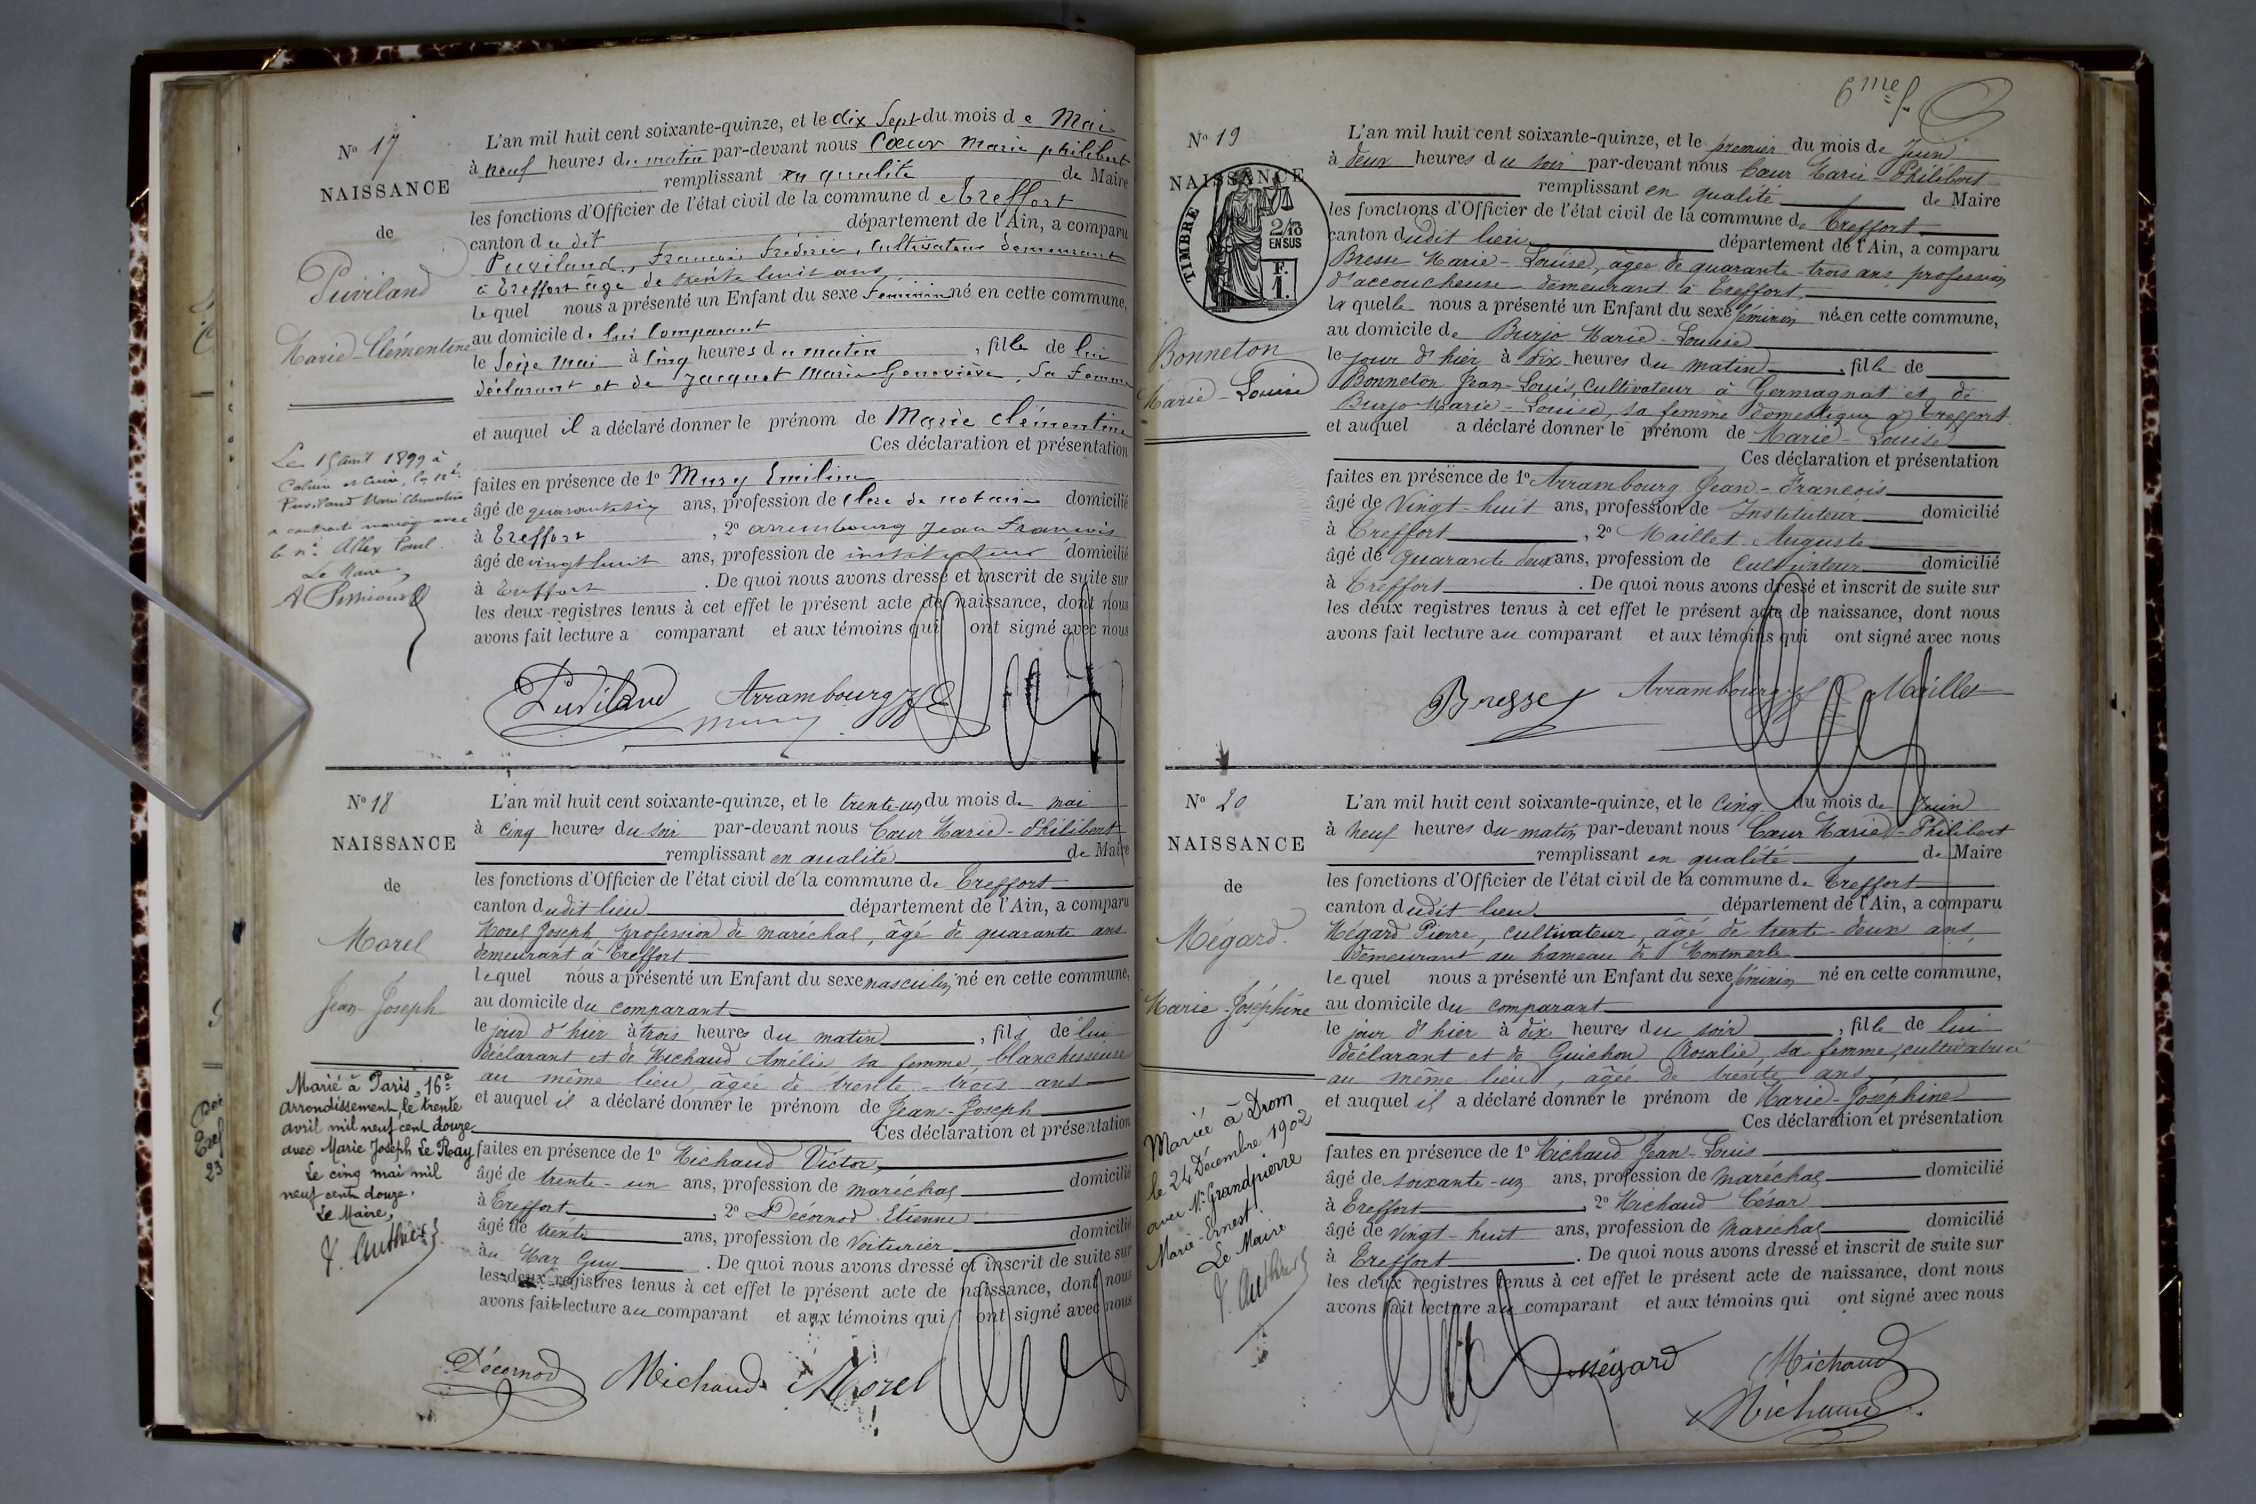 N° 17
NAISSANCE
de
Puviland
Marie-Clémentine
Le 15 avril 1899 à
Puviland Marie Clémentine
a contracté mariage avec
Le Maire
L'an mil huit cent soixante-quinze, et le dix Sept du mois de Mai
à neuf heures du matin par-devant nous Cœur Marie philibert
remplissant en qualité de Maire
les fonctions d'Officier de l'état civil de la commune de Treffort
canton du dit département de l'Ain, a comparu
Puviland, François Frédéric, Cultivateur demeurant
à Treffort âgé de trente huit ans
lequel nous a présenté un Enfant du sexe féminin né en cette commune,
au domicile de lui Comparant
le Seize Mai à Cinq heures du matin , fille de lui
déclarant et de Jacquet Marie Geneviève, Sa Femme
et auquel il a déclaré donner le prénom de Marie Clémentine
Ces déclaration et présentation
faites en présence de 1° Mury Emilien
âgé de quarante six ans, profession de Clerc de notaire domicilié
à Treffort , 2° arrambourg Jean François
âgé de vingt huit ans, profession de instituteur domicilié
à Treffort . De quoi nous avons dressé et inscrit de suite sur
les deux registres tenus à cet effet le présent acte de naissance, dont nous
avons fait lecture a comparant et aux témoins qui ont signé avec nous
Puviland Arrambourg
Mury
N° 18
NAISSANCE
de
Morel
Jean-Joseph
Marié à Paris, 16e
arrondissement, le trente
avril mil neuf cent douze
avec Marie Joseph Le Ray
Le cinq mai mil
neuf cent douze.
Le Maire,
L'an mil huit cent soixante-quinze, et le trente-un du mois de mai
à cinq heures du soir par-devant nous Cœur Marie-Philibert
remplissant en qualité de Maire
les fonctions d'Officier de l'état civil de la commune de Treffort
canton dudit lieu département de l'Ain, a comparu
Morel Joseph, profession de maréchal, âgé de quarante ans
demeurant à Treffort
lequel nous a présenté un Enfant du sexe masculin né en cette commune,
au domicile du comparant
le jour d'hier à trois heures du matin , fils de lui
déclarant et de Michaud Amélie sa femme, blanchisseuse
au même lieu, âgée de trente-trois ans
et auquel il a déclaré donner le prénom de Jean-Joseph
Ces déclaration et présentation
faites en présence de 1° Michaud Victor
âgé de trente-un ans, profession de maréchal domicilié
à Treffort , 2° Décornod Etienne
âgé de trente ans, profession de voiturier domicilié
au Mas Guy . De quoi nous avons dressé et inscrit de suite sur
les deux registres tenus à cet effet le présent acte de naissance, dont nous
avons fait lecture au comparant et aux témoins qui ont signé avec nous
Décornod Michaud Morel
6me f.
N° 19
NAISSANCE
TIMBRE
2/10
EN SUS
F.
1.
Bonneton
Marie-Louise
L'an mil huit cent soixante-quinze, et le premier du mois de Juin
à deux heures du soir par-devant nous Cœur Marie-Philibert
remplissant en qualité de Maire
les fonctions d'Officier de l'état civil de la commune de Treffort
canton dudit lieu département de l'Ain, a comparu
Bresse Marie-Louise, âgée de quarante-trois ans, profession
d'accoucheuse demeurant à Treffort
laquelle nous a présenté un Enfant du sexe féminin née en cette commune,
au domicile de Burjo Marie-Louise
le jour d'hier à dix heures du matin , fille de
Bonneton Jean-Louis, cultivateur à Germagnat et de
Burjo Marie-Louise, sa femme domestique à Treffort
et auquel a déclaré donner le prénom de Marie-Louise
Ces déclaration et présentation
faites en présence de 1° Arrambourg Jean-François
âgé de Vingt-huit ans, profession de Instituteur domicilié
à Treffort , 2° Maillet Auguste
âgé de quarante deux ans, profession de cultivateur domicilié
à Treffort . De quoi nous avons dressé et inscrit de suite sur
les deux registres tenus à cet effet le présent acte de naissance, dont nous
avons fait lecture au comparant et aux témoins qui ont signé avec nous
Bresse Arrambourg Maillet
N° 20
NAISSANCE
de
Mégard
Marie-Joséphine
Mariée à Drom
le 24 Décembre 1902
avec Mr Grandpierre
Marie-Ernest
Le Maire
L'an mil huit cent soixante-quinze, et le cinq du mois de Juin
à neuf heures du matin par-devant nous Cœur Marie-Philibert
remplissant en qualité de Maire
les fonctions d'Officier de l'état civil de la commune de Treffort
canton dudit lieu département de l'Ain, a comparu
Mégard Pierre, cultivateur, âgé de trente-deux ans,
demeurant au hameau de Montmerle
lequel nous a présenté un Enfant du sexe féminin né en cette commune,
au domicile du comparant
le jour d'hier à dix heures du soir , fille de lui
déclarant et de Guichon Rosalie, sa femme, cultivatrice
au même lieu, âgée de trente ans
et auquel il a déclaré donner le prénom de Marie-Joséphine
Ces déclaration et présentation
faites en présence de 1° Michaud Jean-Louis
âgé de soixante-un ans, profession de maréchal domicilié
à Treffort , 2° Michaud César
âgé de vingt-huit ans, profession de maréchal domicilié
à Treffort . De quoi nous avons dressé et inscrit de suite sur
les deux registres tenus à cet effet le présent acte de naissance, dont nous
avons fait lecture au comparant et aux témoins qui ont signé avec nous
Mégard Michaud
Michaud